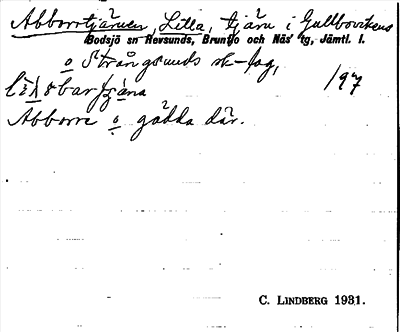 Abborrtjärnen, Lilla, tjärn i Gullbovikens
Bodsjö sn Revsunds, Brunflo och Näs tg, Jämtl. l.
o Strångsunds sk-lag,
197
Abborre o gädda där.
C. LINDBERG 1931.